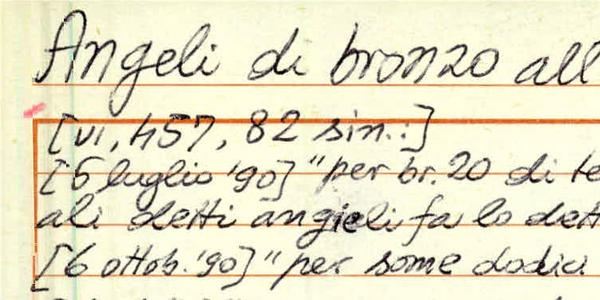 Angeli di bronzo all
[VI, 457, 82 sin.:]
[5 luglio '90] "per br. 20 di te
ali detti angieli fa lo dett
[6 ottob. '90] "per some dodici